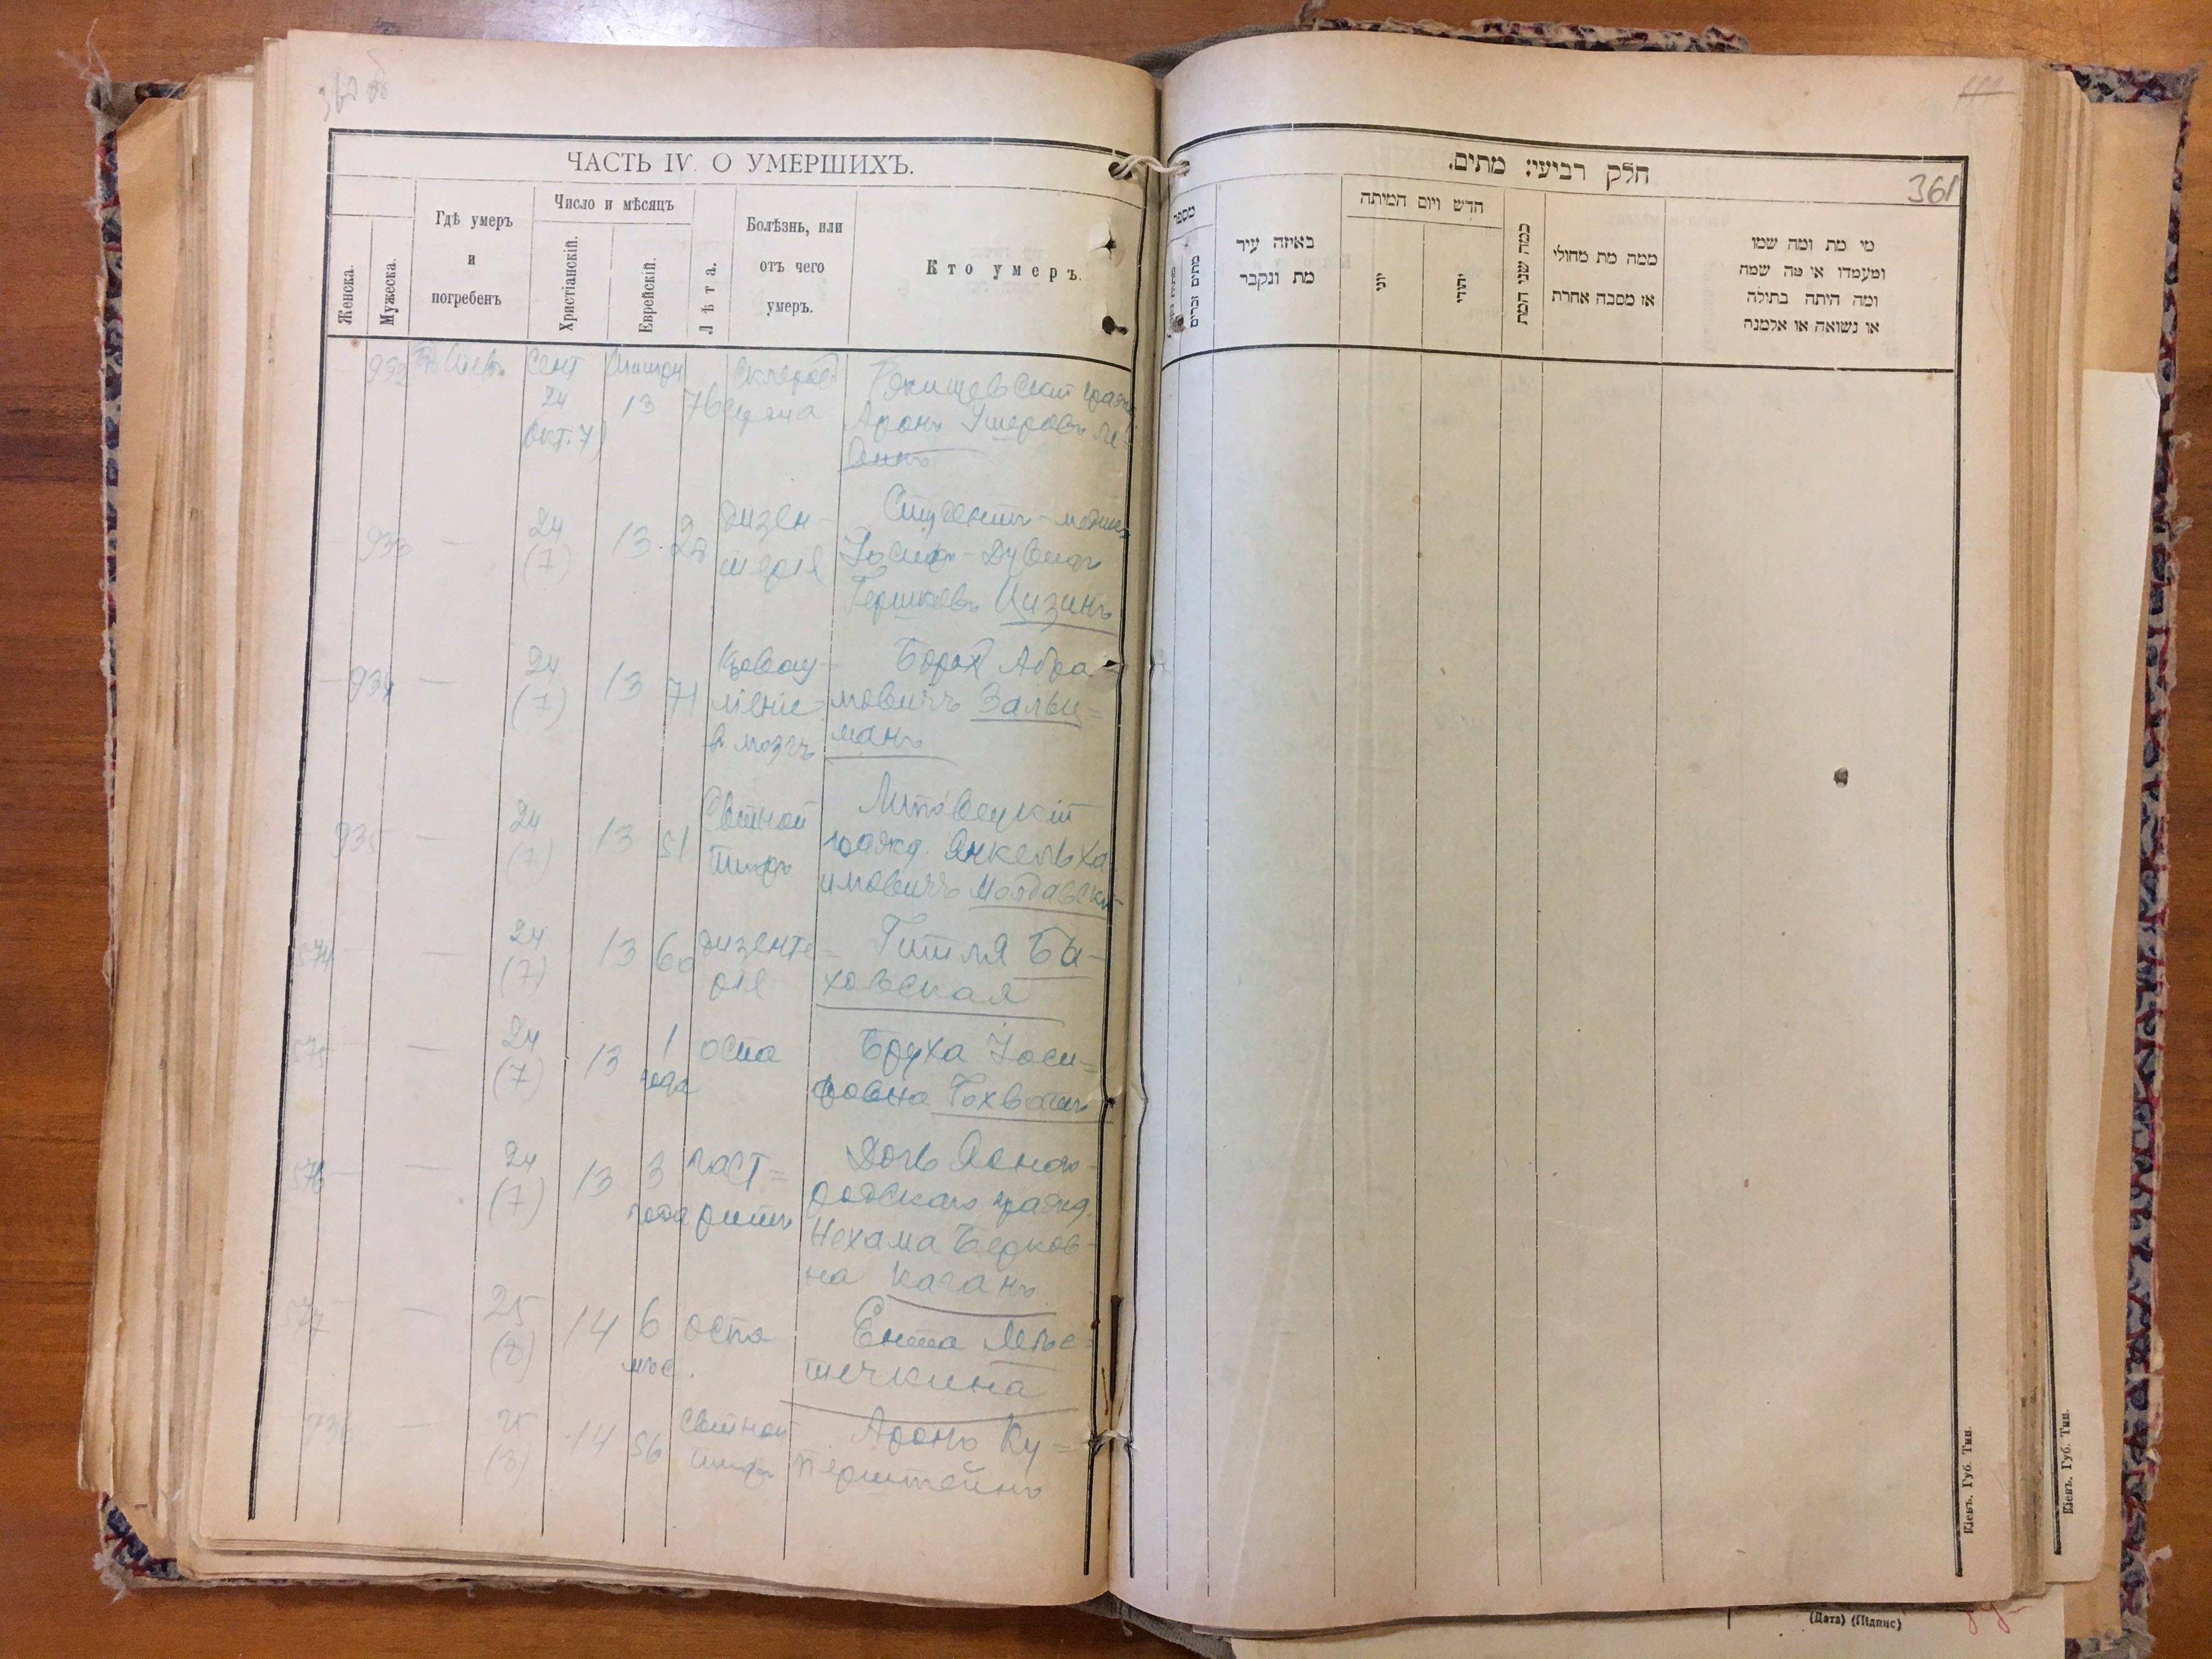 ЧАСТЬ IV. О УМЕРШИХЪ.
Женска.
Мужеска.
Гдѣ умеръ
и
погребенъ
Число и мѣсяцъ
Христіанскій.
Еврейскій.
Лѣта.
Болѣзнь, или
отъ чего
умеръ.
Кто умеръ.
932
Сент
24
Окт. 7)
13
76
склероз
сердца
Ржищевскій гражд
Аронъ Ушеровъ Ле=
винъ
933 —
24
(7)
13
28
дизен-
терія
Студентъ-медикъ
Іосифъ-Дувидъ
Гершковъ Цизинъ
934 —
24
(7)
13
71
Кровоиз-
ліяніе
в мозгъ
Борох Абра=
мовичъ Зальц=
манъ
935 —
24
(7)
13
51
Сыпной
тифъ
Липовецкій
гражд. Янкель Ха
имовичъ Молдавскій
574 —
24
(7)
13
60
дизенте=
рія
Гитля Бы-
ховская
575 —
24
(7)
13
1
года
оспа
Бруха Іоси=
фовна Гохватъ
576 —
24
(7)
13
3
года
гаст=
ритъ
Дочь Ясного-
родскаго гражд.
Нехама Берков-
на Каганъ
577 —
25
(8)
14
6
мѣс.
оспа
Ента Мѣс=
течкина
936 —
25
(8)
14
56
Сыпной
тифъ
Аронъ Ку=
перштейнъ
חלק רביעי: מתים.
361
מספר
מתים זכרים
באיזה עיר
מת ונקבר
חדש ויום המיתה
יוני
יהודי
כמה שני המת
ממה מת מחולי
או מסבה אחרת
מי מת ומה שמו
ומעמדו או מה שמה
ומה היתה בתולה
או נשואה או אלמנה
Кіевъ. Губ. Тип.
Кіевъ. Губ. Тип.
(Дата) (Підпис)